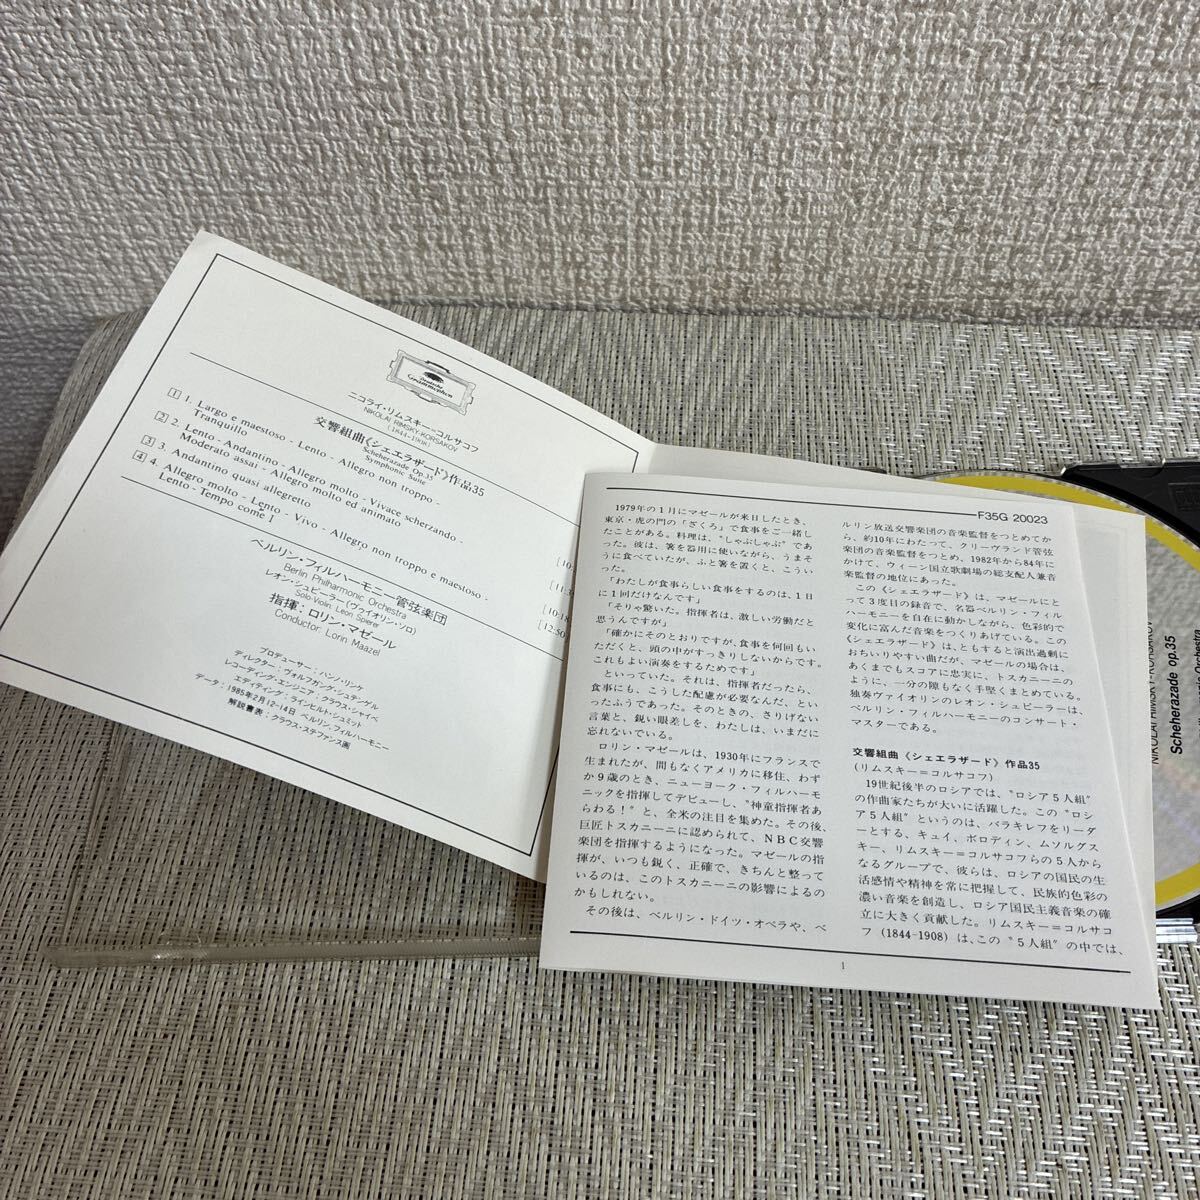 Deutsche
Grammophon
ニコライ・リムスキー=コルサコフ
NIKOLAI RIMSKY-KORSAKOV
(1844-1908)
交響組曲《シェエラザード》作品35
Scheherazade Op.35
Symphonic Suite
[1] 1. Largo e maestoso - Lento - Allegro non troppo -
Tranquillo
[2] 2. Lento - Andantino - Allegro molto - Vivace scherzando -
Moderato assai - Allegro molto ed animato
[3] 3. Andantino quasi allegretto
[4] 4. Allegro molto - Lento - Vivo - Allegro non troppo e maestoso -
Lento - Tempo come I
[10:
[11:3
[10:18
[12:50
ベルリン・フィルハーモニー管弦楽団
Berlin Philharmonic Orchestra
レオン・シュピーラー(ヴァイオリン・ソロ)
Solo Violin: Leon Spierer
指揮・ロリン・マゼール
Conductor: Lorin Maazel
プロデューサー・ハンノ・リンケ
ディレクター・ヴォルフガング・シュテンゲル
レコーディング・エンジニア・クラウス・シャイベ
エディティング・ラインヒルト・シュミット
データ・1985年2月12-14日 ベルリン,フィルハーモニー
解説書表・クラウス・ステファンス画
F35G 20023
1979年の1月にマゼールが来日したとき、
東京・虎の門の「ざくろ」で食事をご一緒し
たことがある。料理は、"しゃぶしゃぶ" であ
った。彼は、箸を器用に使いながら、うまそ
うに食べていたが、ふと箸を置くと、こうい
った。
「わたしが食事らしい食事をするのは、1日
に1回だけなんです」
「そりゃ驚いた。指揮者は、激しい労働だと
思うんですが」
「確かにそのとおりですが、食事を何回もい
ただくと、頭の中がすっきりしないからです。
これもよい演奏をするためです」
といっていた。それは、指揮者だったら、
食事にも、こうした配慮が必要なんだ、とい
ったふうであった。そのときの、さりげない
言葉と、鋭い眼差しを、わたしは、いまだに
忘れないでいる。
ロリン・マゼールは、1930年にフランスで
生まれたが、間もなくアメリカに移住、わず
か9歳のとき、ニューヨーク・フィルハーモ
ニックを指揮してデビューし、"神童指揮者あ
らわる!" と、全米の注目を集めた。その後、
巨匠トスカニーニに認められて、NBC交響
楽団を指揮するようになった。マゼールの指
揮が、いつも鋭く、正確で、きちんと整って
いるのは、このトスカニーニの影響によるの
かもしれない。
その後は、ベルリン・ドイツ・オペラや、ベ
ルリン放送交響楽団の音楽監督をつとめてか
ら、約10年にわたって、クリーヴランド管弦
楽団の音楽監督をつとめ、1982年から84年に
かけて、ウィーン国立歌劇場の総支配人兼音
楽監督の地位にあった。
この《シェエラザード》は、マゼールにと
って3度目の録音で、名器ベルリン・フィル
ハーモニーを自在に動かしながら、色彩的で
変化に富んだ音楽をつくりあげている。この
《シェエラザード》は、ともすると演出過剰に
おちいりやすい曲だが、マゼールの場合は、
あくまでもスコアに忠実に、トスカニーニの
ように、一分の隙もなく手堅くまとめている。
独奏ヴァイオリンのレオン・シュピーラーは、
ベルリン・フィルハーモニーのコンサート・
マスターである。
交響組曲《シェエラザード》作品35
(リムスキー=コルサコフ)
19世紀後半のロシアでは、"ロシア5人組"
の作曲家たちが大いに活躍した。この "ロシ
ア5人組" というのは、バラキレフをリーダ
ーとする、キュイ、ボロディン、ムソルグス
キー、リムスキー=コルサコフらの5人から
なるグループで、彼らは、ロシアの国民の生
活感情や精神を常に把握して、民族的色彩の
濃い音楽を創造し、ロシア国民主義音楽の確
立に大きく貢献した。リムスキー=コルサコ
フ (1844-1908) は、この "5人組" の中では、
1
NIKOLAI RIMSKY-KORSAKOV
Scheherazade op.35
Orchestra